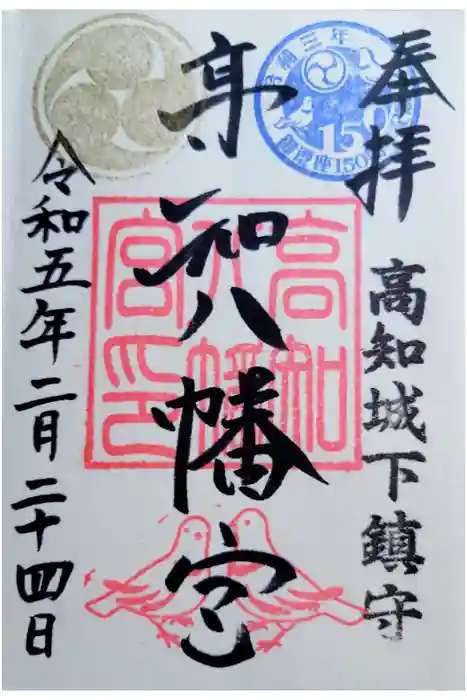 奉拝
高知城下鎮守
高知八幡宮
令和五年二月二十四日
高知
八幡
宮印
令和三年
御鎮座150年
150